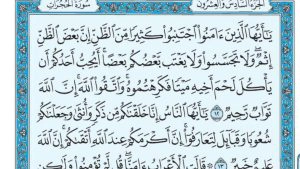 الجزء السادس والعشرون
سورة الحجرات
يَٰٓأَيُّهَا ٱلَّذِينَ ءَامَنُوا۟ ٱجْتَنِبُوا۟ كَثِيرًا مِّنَ ٱلظَّنِّ إِنَّ بَعْضَ ٱلظَّنِّ
إِثْمٌ ۖ وَلَا تَجَسَّسُوا۟ وَلَا يَغْتَب بَّعْضُكُم بَعْضًا ۚ أَيُحِبُّ أَحَدُكُمْ أَن
يَأْكُلَ لَحْمَ أَخِيهِ مَيْتًا فَكَرِهْتُمُوهُ ۚ وَٱتَّقُوا۟ ٱللَّهَ ۚ إِنَّ ٱللَّهَ
تَوَّابٌ رَّحِيمٌ ١٢ يَٰٓأَيُّهَا ٱلنَّاسُ إِنَّا خَلَقْنَٰكُم مِّن ذَكَرٍ وَأُنثَىٰ وَجَعَلْنَٰكُمْ
شُعُوبًا وَقَبَآئِلَ لِتَعَارَفُوٓا۟ ۚ إِنَّ أَكْرَمَكُمْ عِندَ ٱللَّهِ أَتْقَىٰكُمْ ۚ إِنَّ ٱللَّهَ
عَلِيمٌ خَبِيرٌ ١٣ قَالَتِ ٱلْأَعْرَابُ ءَامَنَّا ۖ قُل لَّمْ تُؤْمِنُوا۟ وَلَٰكِن